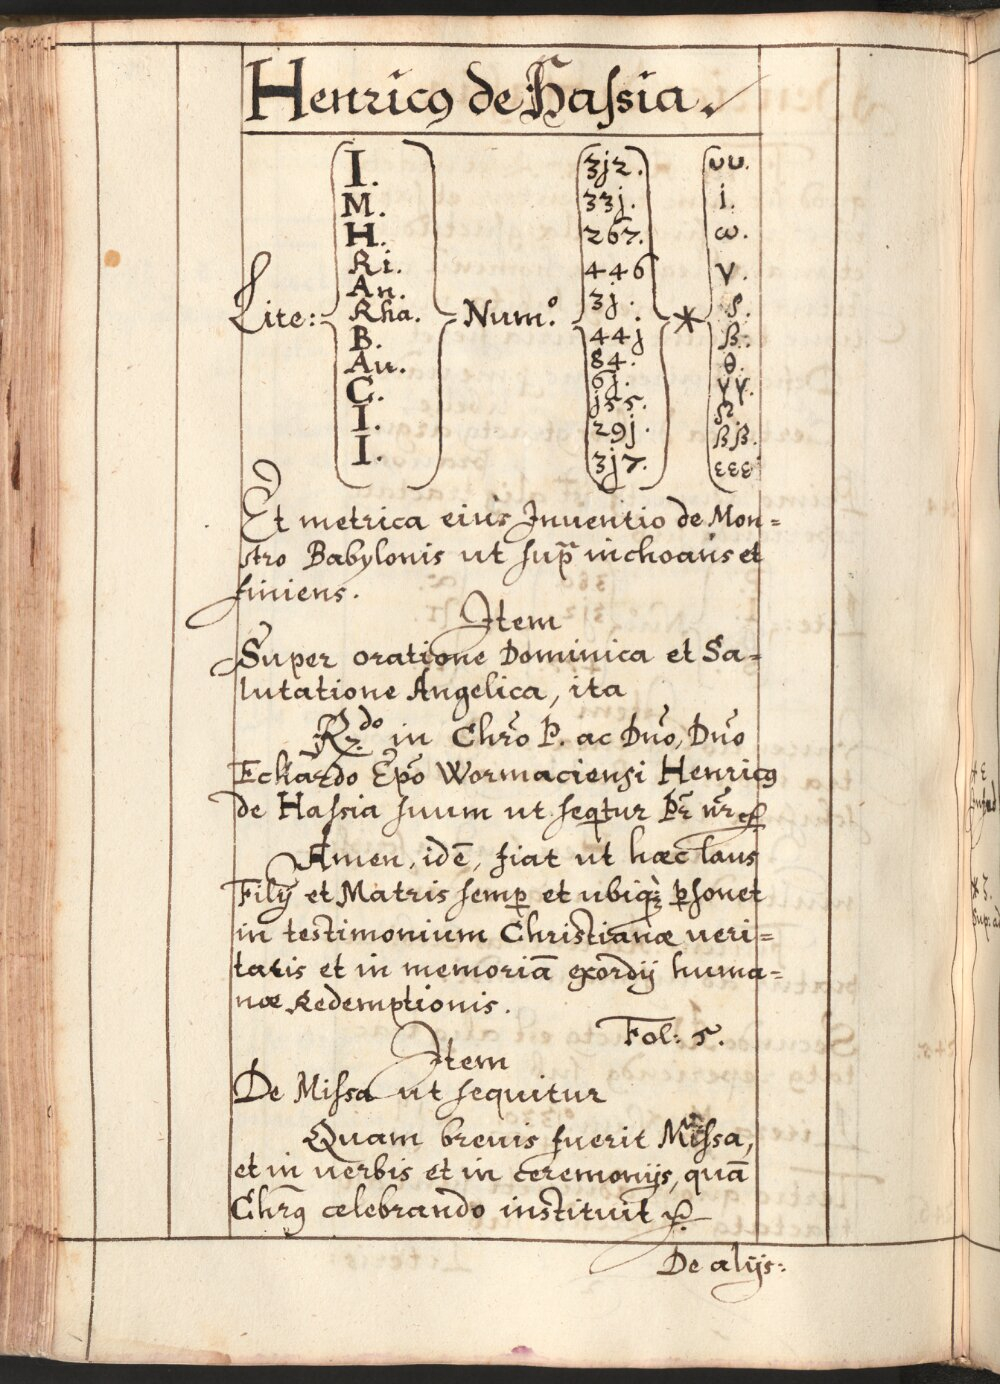 Henricꝯ de Hassia.
Lite: Num.o *
I. 3j2. υυ.
M. 33j. i.
H. 267. ω.
Ri. 446 γ.
An. 3j. 
Rha. 44j ß.
B. 84. θ.
Au. 6j. γγ.
C. j55.
I. 29j. ßß.
I. 3j7. εεε
Et metrica eius Inuentio de Mon=
stro Babylonis ut sup̄ inchoans et
finiens.
Item
Super oratione Dominica et Sa=
lutatione Angelica, ita
Rdo in Chro P. ac Dno, Dno
Eckardo Epo Wormaciensi Henricꝯ
de Hassia suum ut seqtur Pr nr
Amen, idē, fiat ut hæc laus
Filij et Matris semp et ubiqꝫ psonet
in testimonium Christianæ ueri=
taris et in memoriā exordij huma=
næ Redemptionis.
Fol: 5.
Item
De Missa ut sequitur
Quam breuis fuerit Missa,
et in uerbis et in ceremonijs, quā
Chrꝯ celebrando instituit
De alijs: